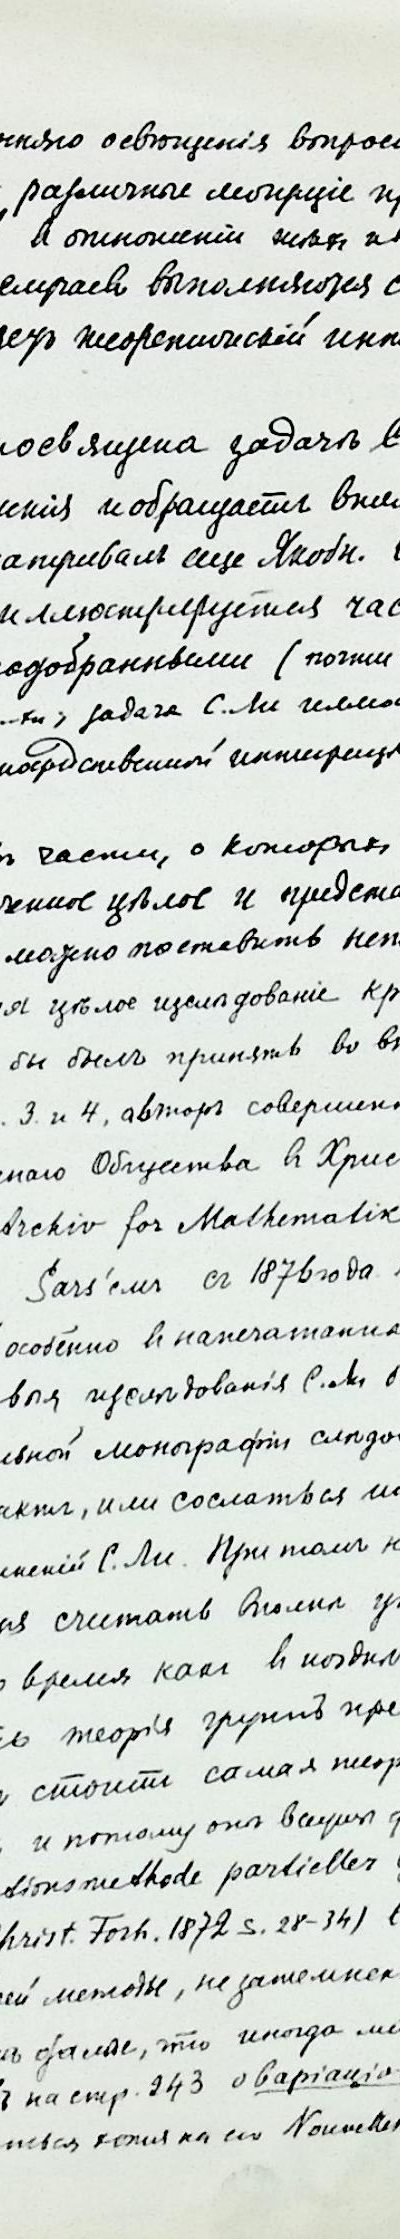 нняго освѣщенія вопроса
различные могущіе пр
в отношеніи
случаев выполняются с
теоретическій инт
посвящена задачѣ
енія и обращаетъ вни
атривалъ еще Якоби.
иллюстрируется час
подобранными (почти
задача С. Ли
посредственной интеграц
части, о которых
ченное цѣлое и предста
можно поставить неп
ая цѣлое изслѣдованіе кр
бы былъ принять во вн
. 3 и 4, авторъ совершен
наго Общества в Хрис
Archiv for Mathematik
Sars'емъ съ 1876 года
особенно в напечатанн
выя изслѣдованія С. Ли
льной монографіи слѣдо
актъ, или сослаться
иненій С. Ли. При томъ н
ся считать вполнѣ
время какъ в поздн
теорія группъ пре
стоитъ самая теор
, и потому онъ
ationsmethode partieller
Christ. Forh. 1872 s. 28-34)
ей методы, не затемнен
далѣе, что иногда
на стр. 243 о варіаціо
ться хотя на его Nouvelle